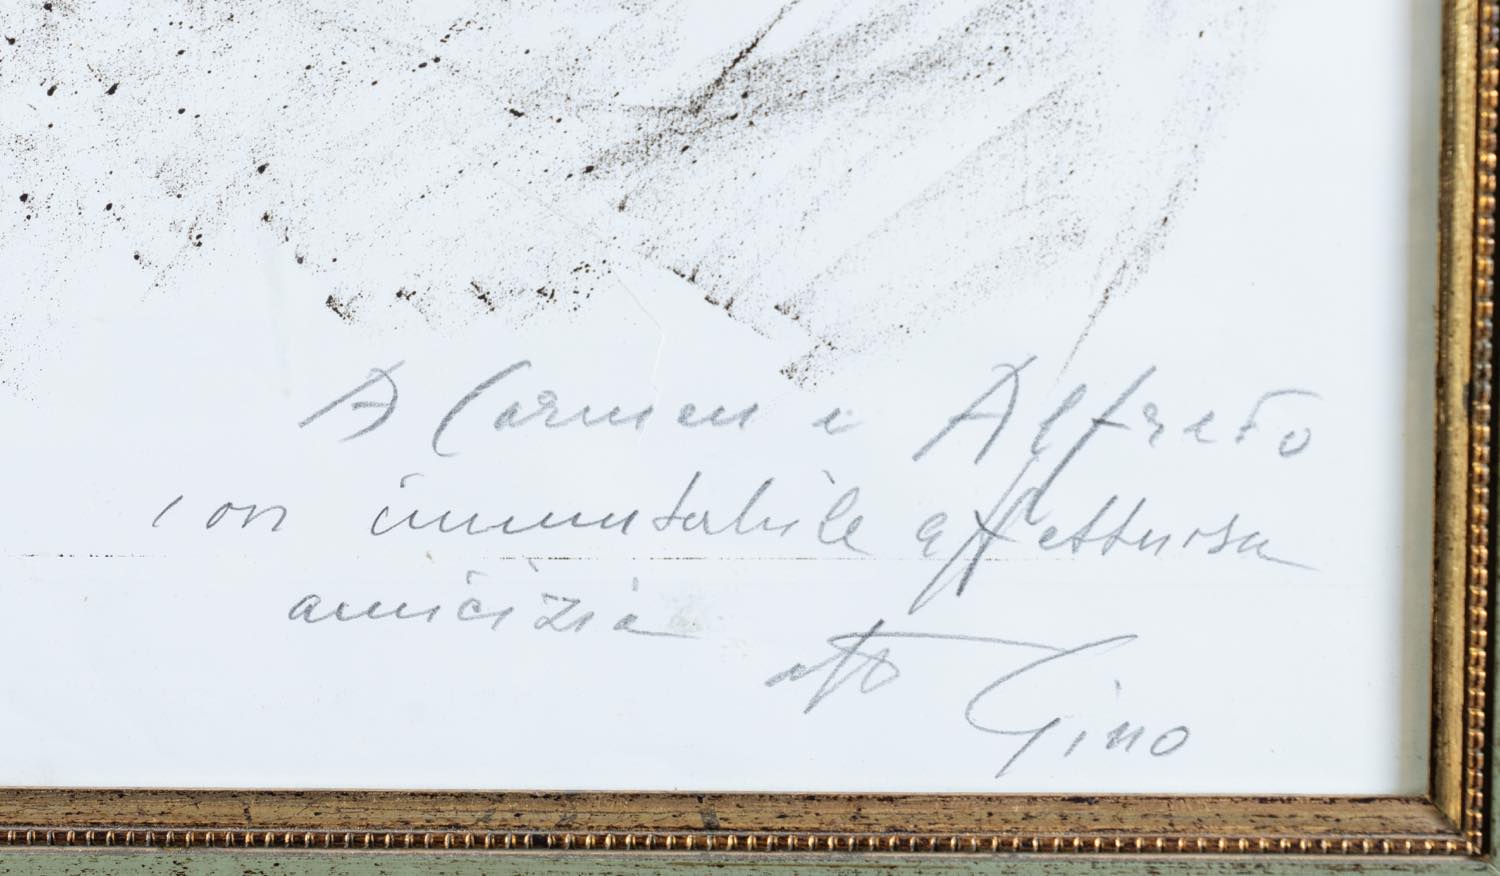 A Carmen e Alfredo
con immutabile affettuosa
amicizia
Gino